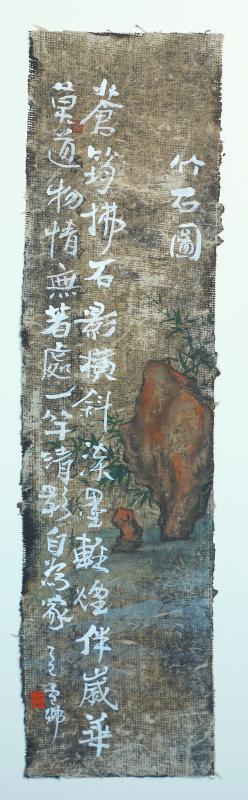 竹石圖
蒼筠拂石影橫斜淡墨輕煙伴歲華
莫道物情無著處一竿清影自為家